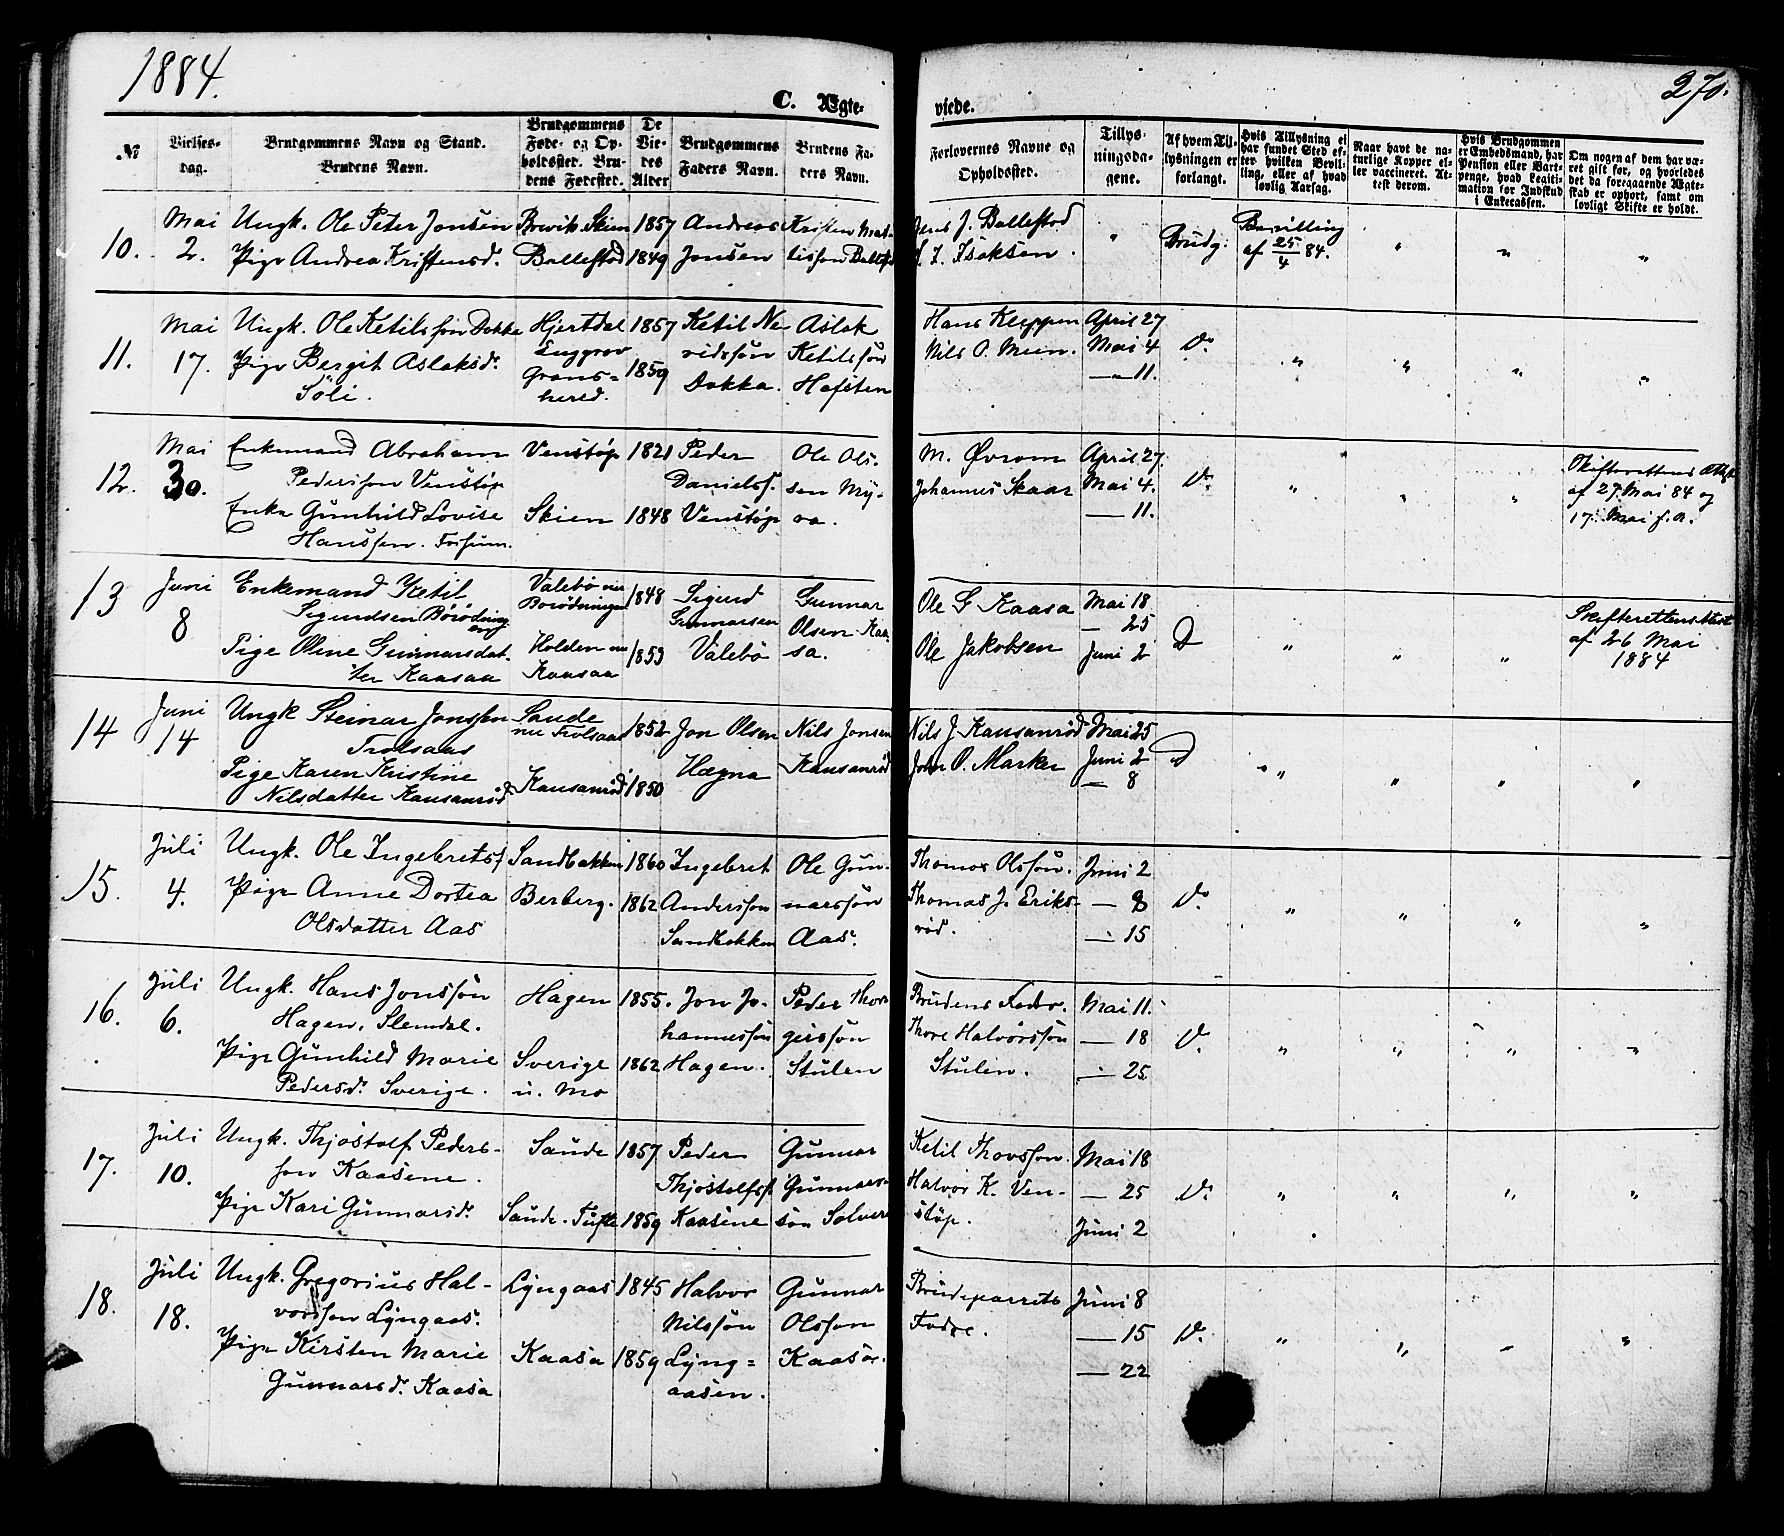 1884.
270.
C. Ægte-
viede.
№
Vielses-
dag.
Brudgommens Navn og Stand.
Brudens Navn.
Brudgommens
Føde- og Op-
holdssted. Bru-
dens Fødested.
De
Vie-
des
Alder
Brudgommens
Faders Navn.
Brudens Fa-
ders Navn.
Forlovernes Navne og
Opholdssted.
Tillys-
ningsda-
gene.
Af hvem Til-
lysningen er
forlangt.
Hvis Tillysning ei
har fundet Sted ef-
ter hvilken Bevil-
ling, eller af hvad
lovlig Aarsag.
Naar havt de na-
turlige Kopper el-
ler vaccineret. At-
test derom.
Hvis Brudgommen
er Embedsmand, har
Pension eller Vart-
penge, hvad Legiti-
mation for Indskud
i Enkecassen.
Om nogen af dem har væ-
ret gift før, og hvorledes
det da foregaaende Ægte-
skab er ophørt, samt om
lovligt Skifte er holdt.
10.
Mai
2.
Ungk. Ole Peter Jonsen
Pige Andrea Kristensd.
Brevik. Skien
Bollestad
1857
1849
Andreas
Jonsen
Kristen Mat-
Jens J. Bollestad
Isaksen.
"
Brudg:
Bevilling
af 25/4 84.
"
"
"
11.
Mai
17.
Ungk. Ole Ketilssøn Dokka
Pige Bergit Aslaksd.
Söli.
Hjertdal
Enggrav
Grans=
herred.
1857
1859
Ketil Ne
ridssön
Dokka.
Aslak
Ketilssön
Hafsten
Hans Kleppen
Nils O. Moen.
April 27
Mai 4
—"— 11.
D.
"
"
"
"
12.
Mai
30.
Enkemand Abraham
Pederssen Venstöp
Enke Gunhild Lovise
Hanssen. Fossum.
Venstøp
Skien
1821
1848
Peder
Danielss.
Venstöp
Ole Ols-
sen My-
ra.
M. Øvrom
Johannes Skaar
April 27.
Mai 4.
— 11.
D.
"
"
"
Skifterettens Attest
af 27. Mai 84 og
17. Mai s. A.
13
Juni
8
Enkemand Ketil
Sigurdsen Børødning
eng
Pige Oline Gunnarsdat-
ter Kaasaa
Valebø nu
Borødningen
Holden nu
Kaasaa
1848
1853
Sigurd
Gunnarsen
Valebö
Gunnar
Olsen Kaa-
sa.
Ole G Kaasa
Ole Jakobsen
Mai 18
— 25
Juni 2
D
"
"
"
Skifterettens Attest
af 26 Mai
1884
14
Juni
14
Ungk Steinar Jonssen
Trolsaas
Pige Karen Kristine
Nilsdatter Kausanröd
Saude
nu Trolsaas
Kausanröd
1852
1850
Jon Olsen
Hægna
Nils Jonsen
Kausanröd
Nils J. Kausanröd
John O. Marker
Mai 25
Juni 2
— 8
D
"
"
"
"
15.
Juli
4.
Ungk. Ole Ingebretss
Pige Anne Dortea
Olsdatter Aas
Sandbakken
Berberg.
1860
1862
Ingebret
Anderssen
Sandbakken
Ole Gun-
narssön
Aas.
Thomas Olssön.
Thomas J. Eriks-
röd.
Juni 2
— 8
— 15
D.
"
"
"
"
16.
Juli
6.
Ungk. Hans Jonssön
Hagen, Slemdal.
Pige Gunhild Marie
Pedersd. Sverige.
Hagen
Sverige
u. Mo
1855.
1862
Jon Jo-
hannessön
Hagen.
Peder Thor
girssön
Stulen
Brudens Fader.
Thore Halvorssön
Stulen.
Mai 11.
— 18
— 25
D.
"
"
"
"
17.
Juli
10.
Ungk. Thjöstolf Peders-
søn Kaasene.
Pige Kari Gunnarsd.
Saude
Saude. Tufte
1857
1859
Peder
Thjöstolfss
Kaasene
Gunnar
Gunnars-
sön Solver
Ketil Thovssøn.
Halvor K. Ven-
stöp.
Mai 18
— 25
Juni 2
D.
"
"
"
"
18.
Juli
18.
Ungk. Gregorius Hal-
vorssøn Lyngaas.
Pige Kirsten Marie
Gunnarsd. Kaasa
Lyngaas
Kaasa
1845
1859
Halvor
Nilssön
Lyng=
aasen.
Gunnar
Olssøn
Kaasa.
Brudeparrets
Fædre.
Juni 8
— 15
— 22
D.
"
"
"
"